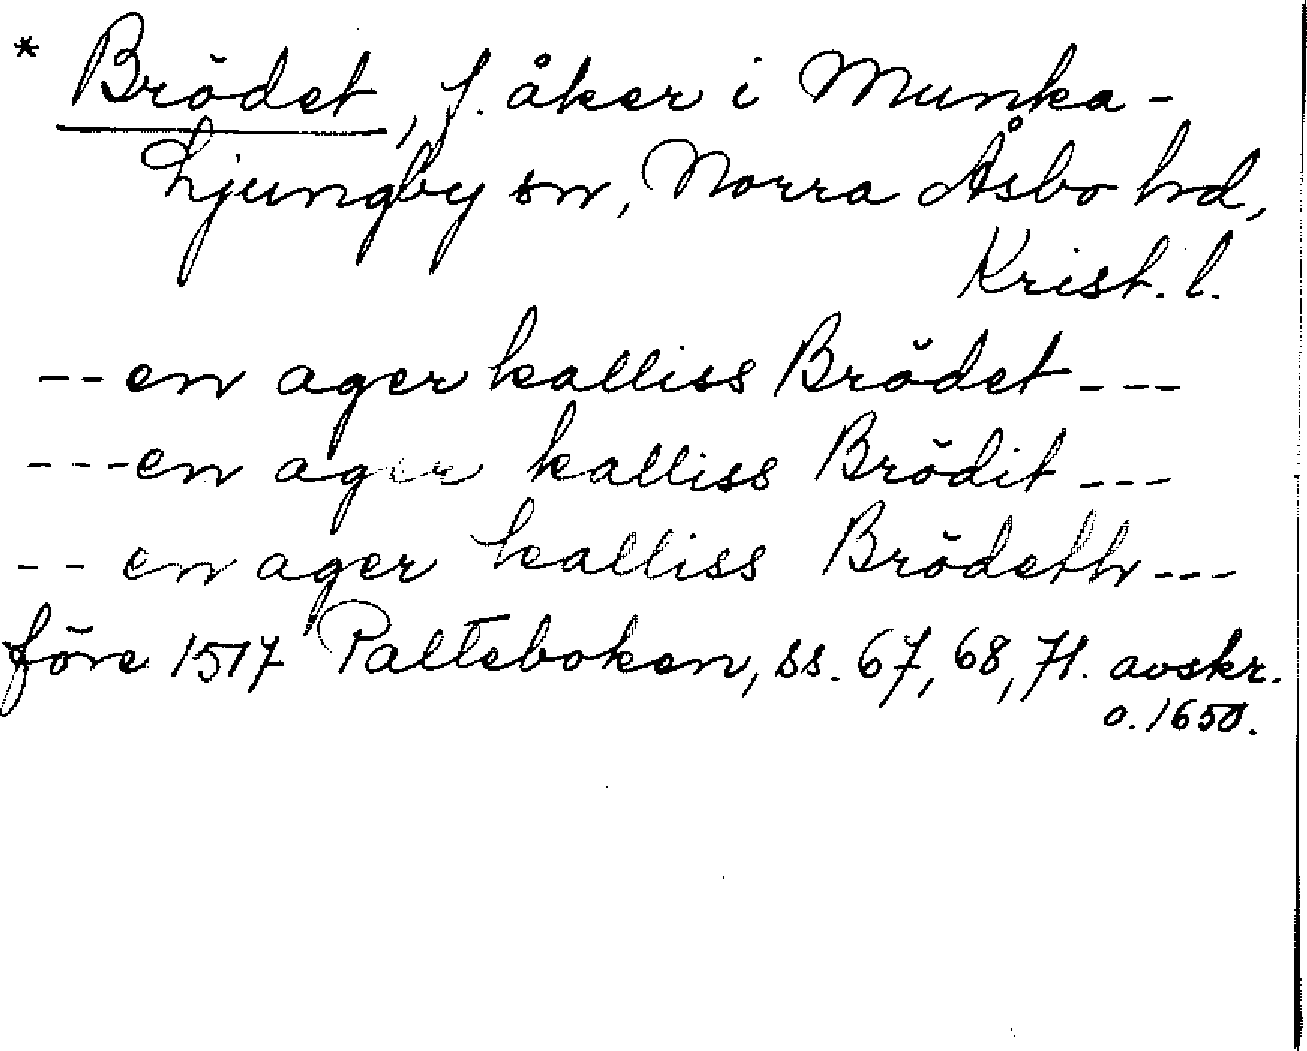 * Brödet, f. åker i Munka-
Ljungby sn, Norra Åsbo hd,
Krist. l.
-- en ager kalliss Brödet ---
--- en ager kalliss Brödit ---
-- en ager kalliss Brödeth ---
före 1517 Palteboken, ss. 67, 68, 71. avskr.
o. 1650.